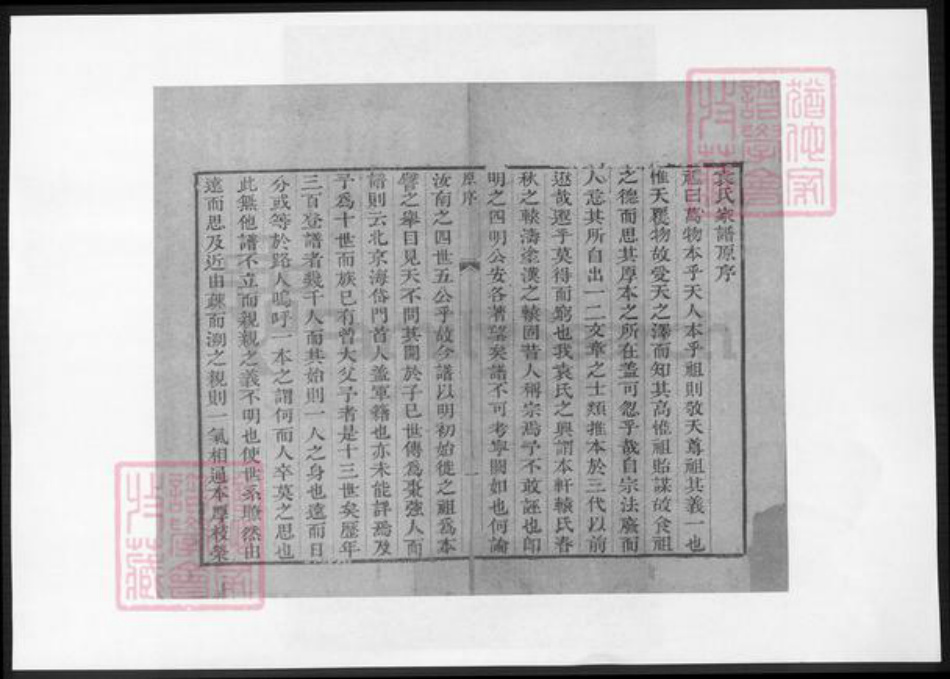 袁氏家譜原序
記曰萬物本乎天人本乎祖則敬天尊祖其義一也
惟天覆物故愛天之澤而知其高惟祖貽謀故食祖
之德而思其厚本之所在蓋可忽乎哉自宗法廢而
人忘其所自出一二文章之士類推本於三代以前
遐哉邈乎莫得而窮也我袁氏之興謂本軒轅氏春
秋之轅濤塗漢之轅固昔人稱宗焉予不敢誣也即
明之四明公安各著望矣譜不可考寧闕如也何論
原序
一
汝南之四世五公乎故今譜以明初始徙之祖為本
譬之舉目見天不問其開於子巳世傳為棗強人而
譜則云北京海岱門首人蓋軍籍也亦未能詳焉及
予為十世而族已有曾大父予者是十三世矣歷年
三百登譜者幾千人而其始則一人之身也遠而日
分或等於路人嗚呼一本之謂何而人卒莫之思也
此無他譜不立而親親之義不明也使世系瞭然由
遠而思及近由疎而溯之親則一氣相通本厚枝榮
猶他家
譜學會
收藏
猶他家
譜學會
收藏